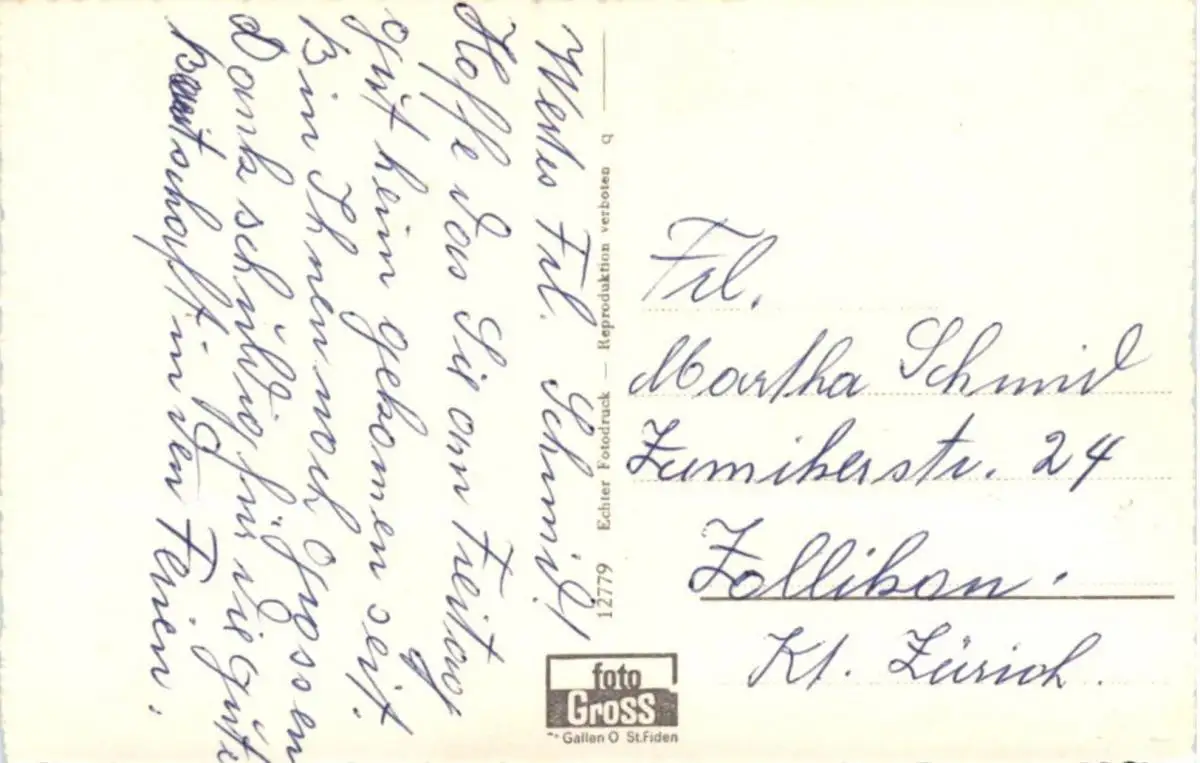 Wertes Frl. Schmid!
Hoffe das Sie am Freitag
gut heim gekomen seit.
Bin Ihnen noch grossen
Dank schuldig für die gute
in den Ferien.
12779 Echter Fotodruck — Reproduktion verboten q
Frl.
Martha Schmid
Zumikerstr. 24
Zollikon.
Kt. Zürich.
foto
Gross
Gallen O St.Fiden